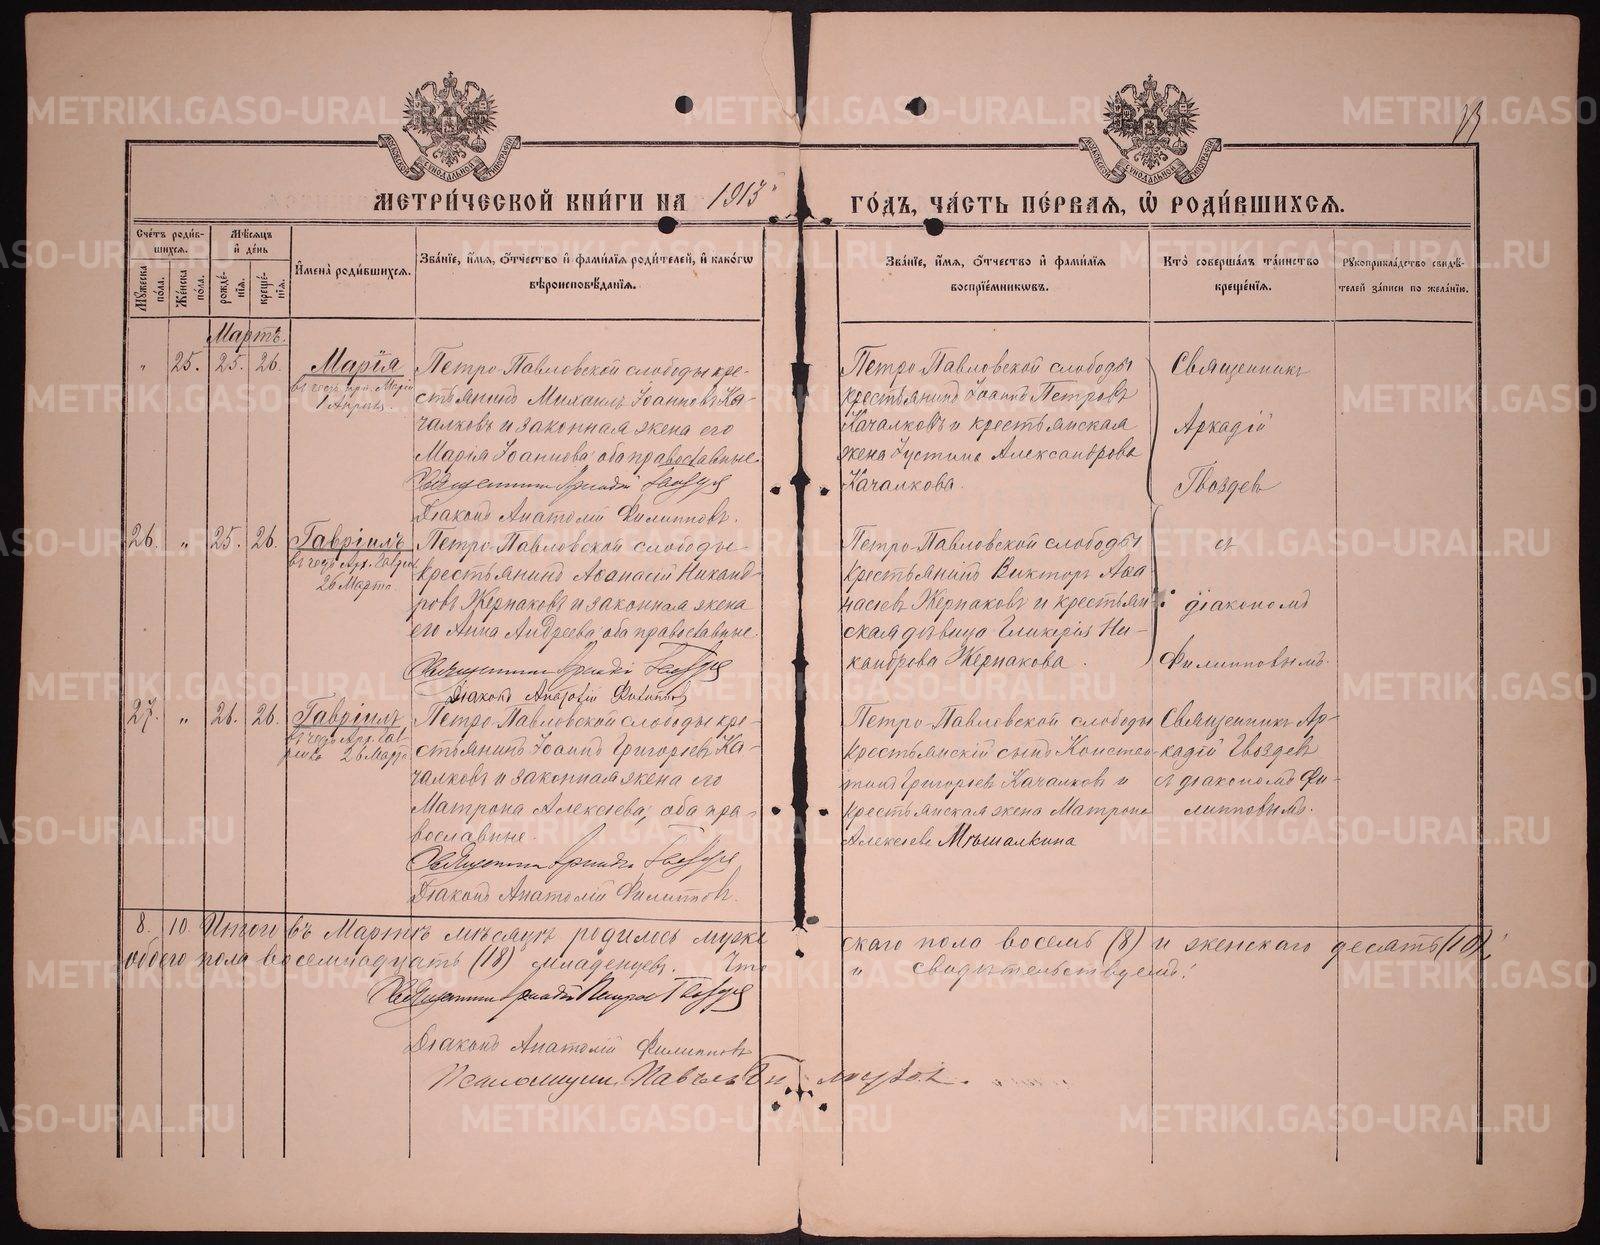 МЕТРИ́ЧЕСКОЙ КНИ́ГИ НА 1913
ГО́ДЪ, ЧА́СТЬ ПЕ́РВАЯ, Ѽ РОДИ́ВШИХСЯ.
Сче́тъ роди́в-
шихся.
Мѣсяцъ
и҆ де́нь
Мꙋ́жеска по́ла.
Же́нска по́ла.
рожде́-
нїѧ.
креще́-
нїѧ.
И҆мена̀ роди́вшихсѧ.
Зва́нїе, и҆́мѧ, ѻ҆́тчество и҆ фами́лїѧ роди́телей, и҆ како́гѡ
вѣроисповѣ́данїѧ.
Зва́нїе, и҆́мѧ, ѻ҆́тчество и҆ фами́лїѧ
воспрїе́мниковъ.
Кто̀ соверша́лъ та́инство
креще́нїѧ.
Рꙋкоприкла́дство свидѣ́-
телей за́писи по жела́нїю.
Мартъ.
" 25. 25. 26. Марія
въ честь прп. Маріи
1 Апрѣля.
Петро-Павловской слободы кре-
стьянинъ Михаилъ Іоанновъ Ка-
чалковъ и законная жена его
Марія Іоаннова; оба православные.
Священникъ Аркадій Гвоздевъ
Діаконъ Анатолій Филипповъ.
Петро-Павловской слободы
крестьянинъ Іоаннъ Петровъ
Качалковъ и крестьянская
жена Іустина Александрова
Качалкова.
Священникъ
Аркадій
Гвоздевъ
26. " 25. 26. Гавріилъ
въ честь Арх. Гавріила
26 Марта.
Петро-Павловской слободы
крестьянинъ Аѳанасій Никанд-
ровъ Жернаковъ и законная жена
его Анна Андреева; оба православные.
Священникъ Аркадій Гвоздевъ
Діаконъ Анатолій Филипповъ
Петро-Павловской слободы
крестьянинъ Викторъ Аѳа-
насіевъ Жернаковъ и крестьян-
ская дѣвица Гликерія Ни-
кандрова Жернакова.
съ
діакономъ
Филипповымъ.
27. " 26. 26. Гавріилъ
въ честь Арх. Гав-
ріила 26 Марта
Петро-Павловской слободы кре-
стьянинъ Іоаннъ Григорьевъ Ка-
чалковъ и законная жена его
Матрона Алексѣева, оба пра-
вославные.
Священникъ Аркадій Гвоздевъ
Діаконъ Анатолій Филипповъ.
Петро-Павловской слободы
крестьянскій сынъ Констан-
тинъ Григорьевъ Качалковъ и
крестьянская жена Матрона
Алексѣева Мѣшалкина
Священникъ Ар-
кадій Гвоздевъ
съ діакономъ Фи-
липповымъ.
8. 10. Итого въ Мартѣ мѣсяцѣ родилось муже
скаго пола восемь (8) и женскаго десять (10),
обоего пола восемнадцать (18) младенцевъ. Что
и свидѣтельствуемъ:
Священникъ Аркадій Петровъ Гвоздевъ
Діаконъ Анатолій Филипповъ
Псаломщик Павелъ
METRIKI.GASO-URAL.RU